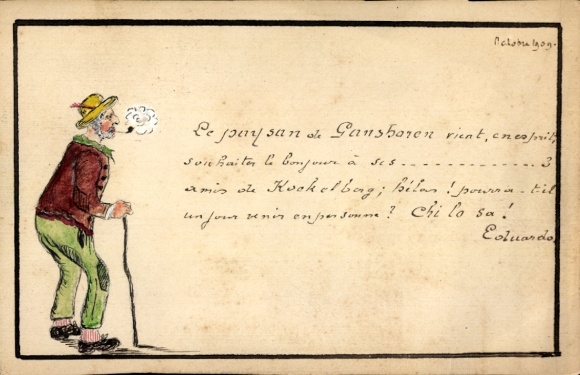 Octobre 1909.
Le paysan de Ganshoren vient, en esprit,
souhaiter le bonjour à ses - - - - - - - - - - - - - 3
amis de Koekelberg; hélas! pourra-t-il
un jour venir en personne? Chi lo sa!
Eduardo